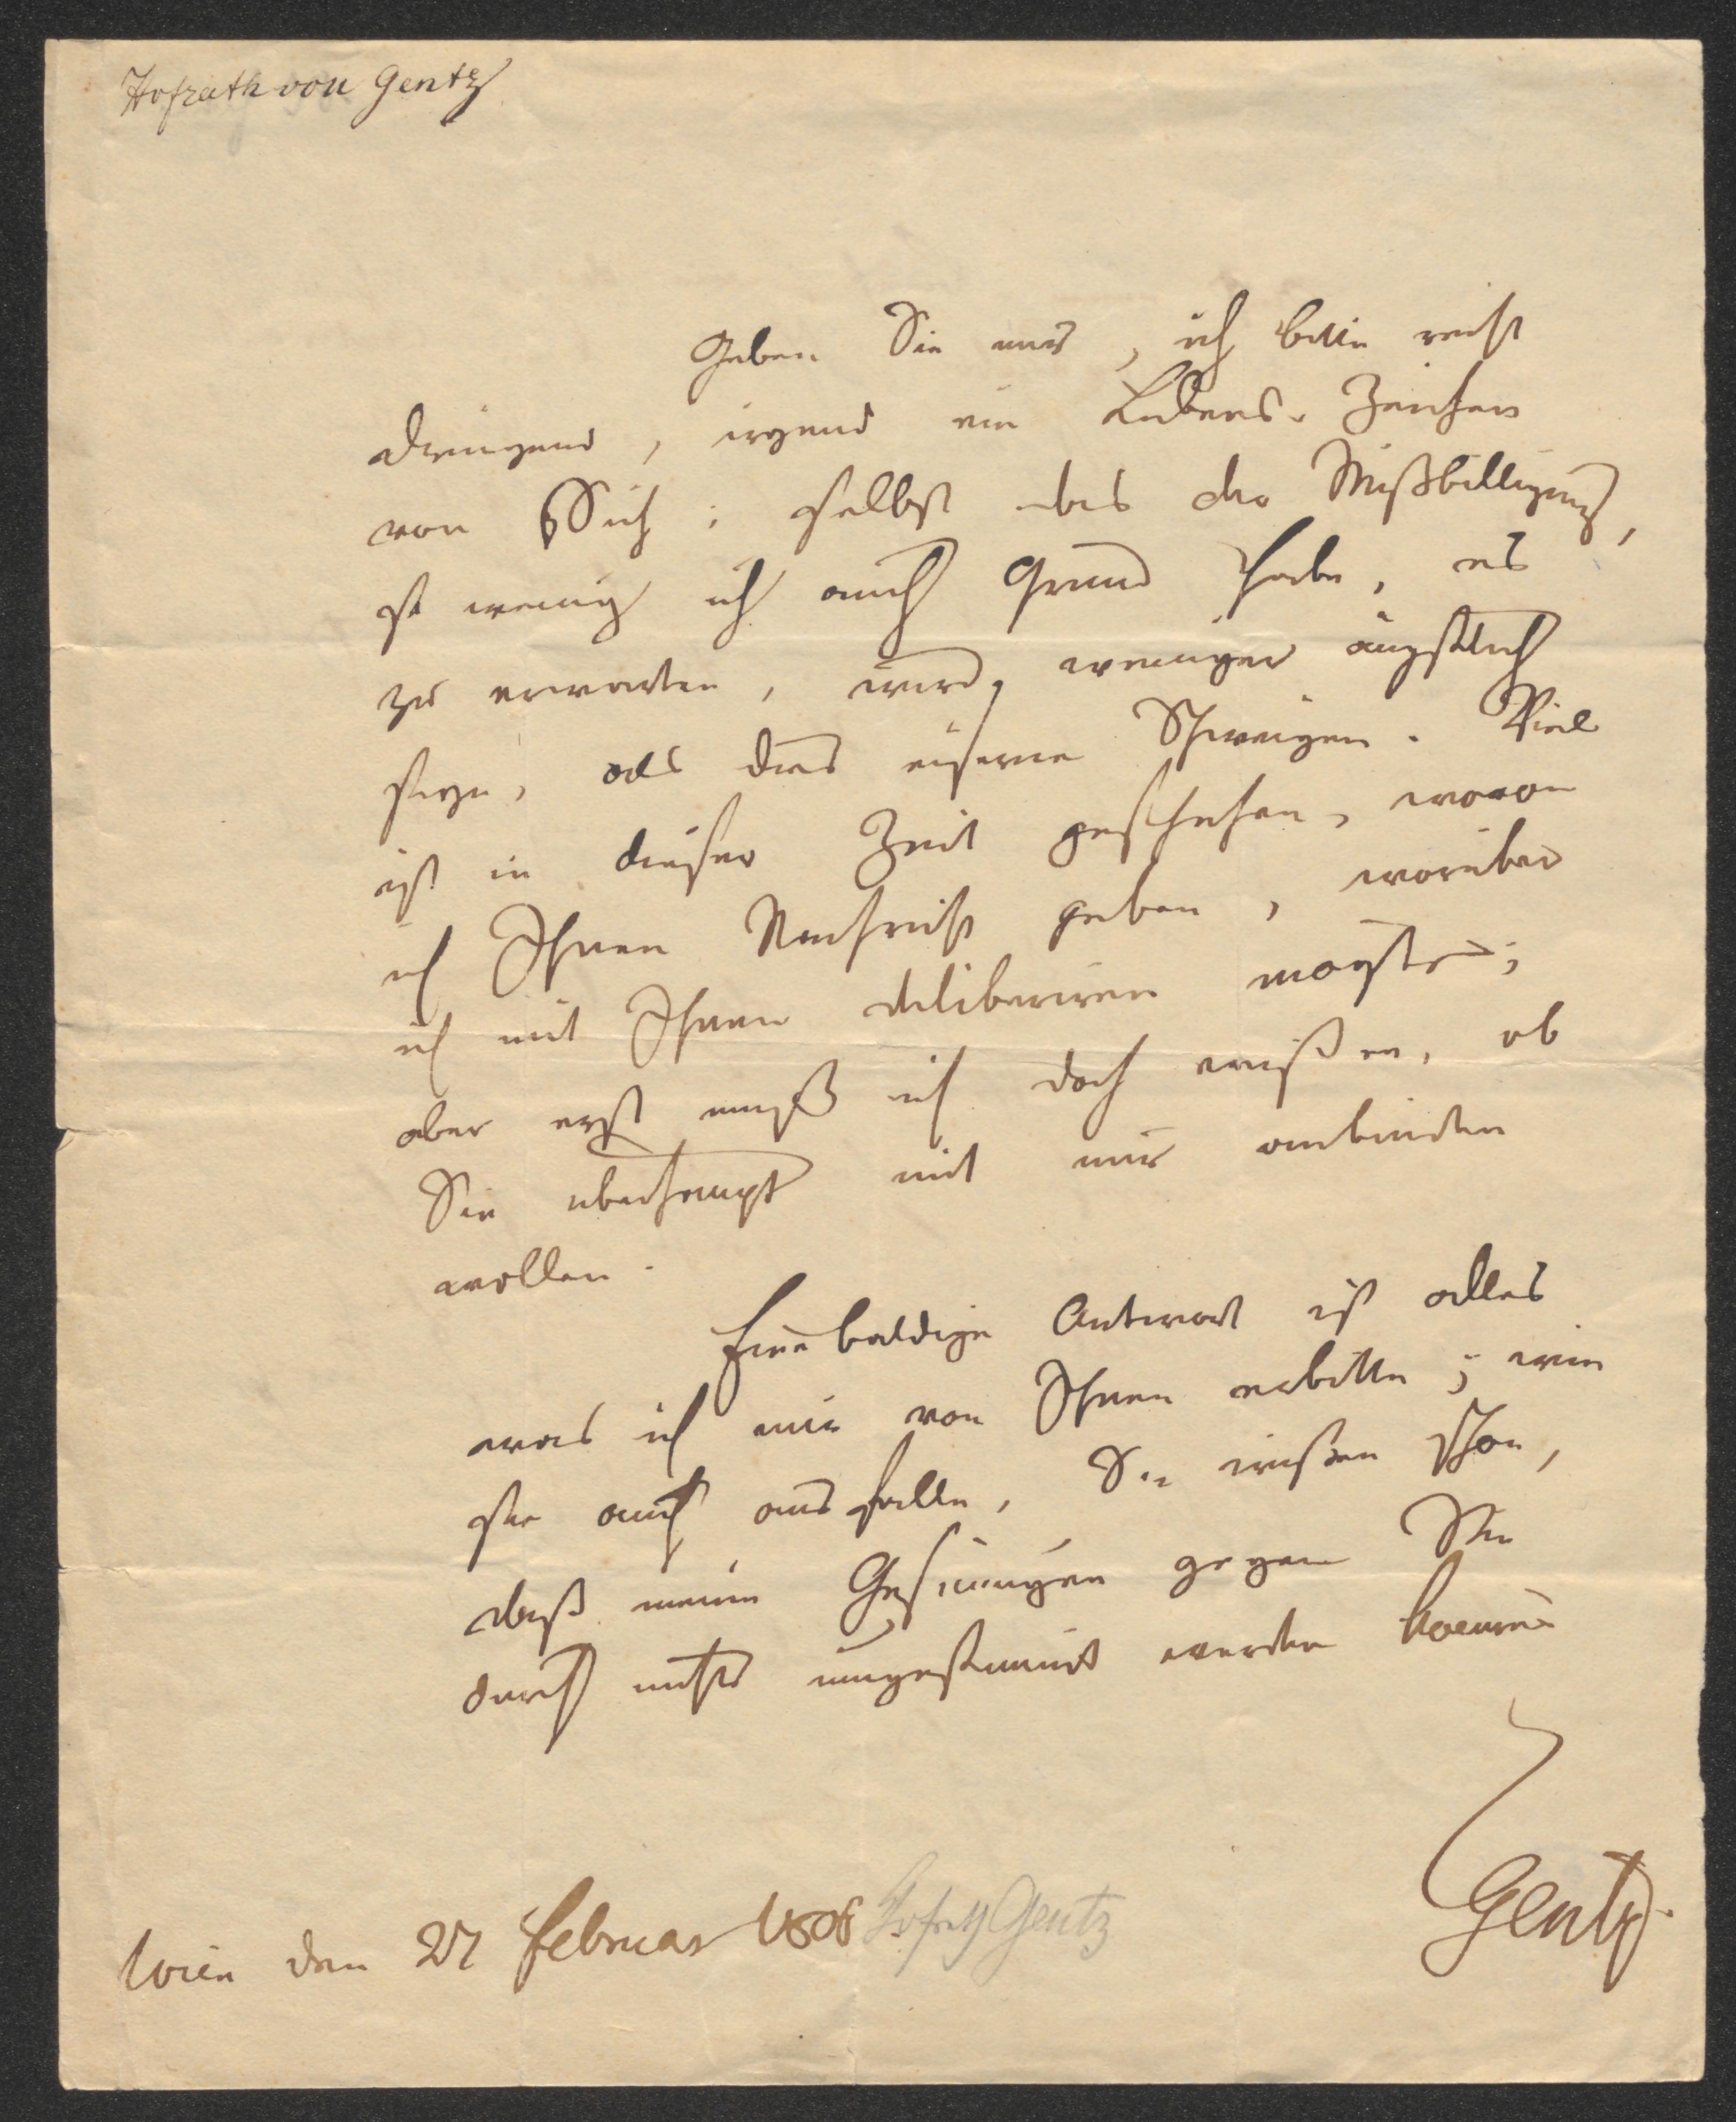 Hofrath von Gentz
Geben Sie mir, ich bitte recht
dringend, irgend ein Lebens-Zeichen
von Sich; selbst das der Mißbilligung,
so wenig ich auch Grund habe, es
zu erwarten, wird weniger ängstlich
seyn, als das eiserne Schweigen. Viel
ist in dieser Zeit geschehen, wovon
ich Ihnen Nachricht geben, worüber
ich mit Ihnen deliberiren mögte;
aber erst muß ich doch wißen, ob
Sie überhaupt mit mir anbinden
wollen.
Eine baldige Antwort ist alles
was ich mir von Ihnen erbitte; wie
sie auch ausfalle, Sie wißen schon,
daß meine Gesinnungen gegen Sie
durch nichts umgestimmt werden können
Gentz.
Wien den 27 Februar 1808 Hofrath Gentz